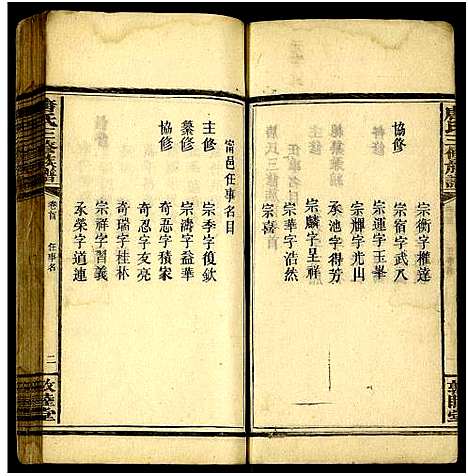 協修
宗衡字權達
宗宿字武八
宗運字玉峯
宗輝字光山
承池字得芳
宗麟字呈祥
宗華字浩然
宗喜
甯邑任事名目
主修
宗季字復欽
纂修
宗濤字益華
協修
奇忍字積家
奇忍字友亮
奇瑞字桂林
宗祥字習義
承榮字道連
唐氏三修族譜
卷首
任事名
二
敦睦堂